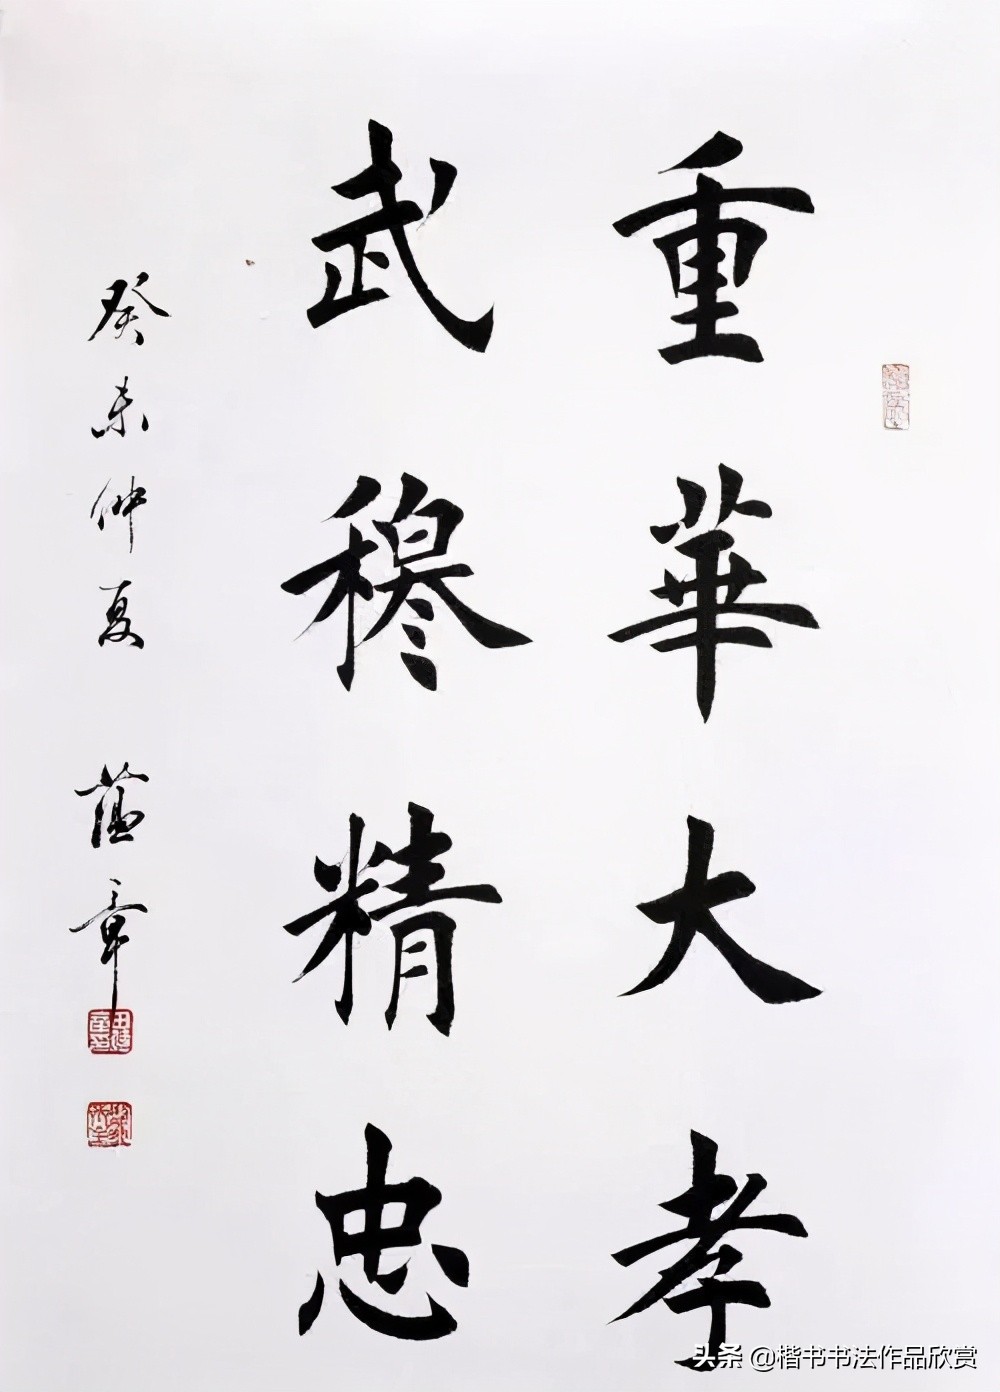 重華大孝
武穆精忠
癸未仲夏 蕴章
头条 @楷书书法作品欣赏